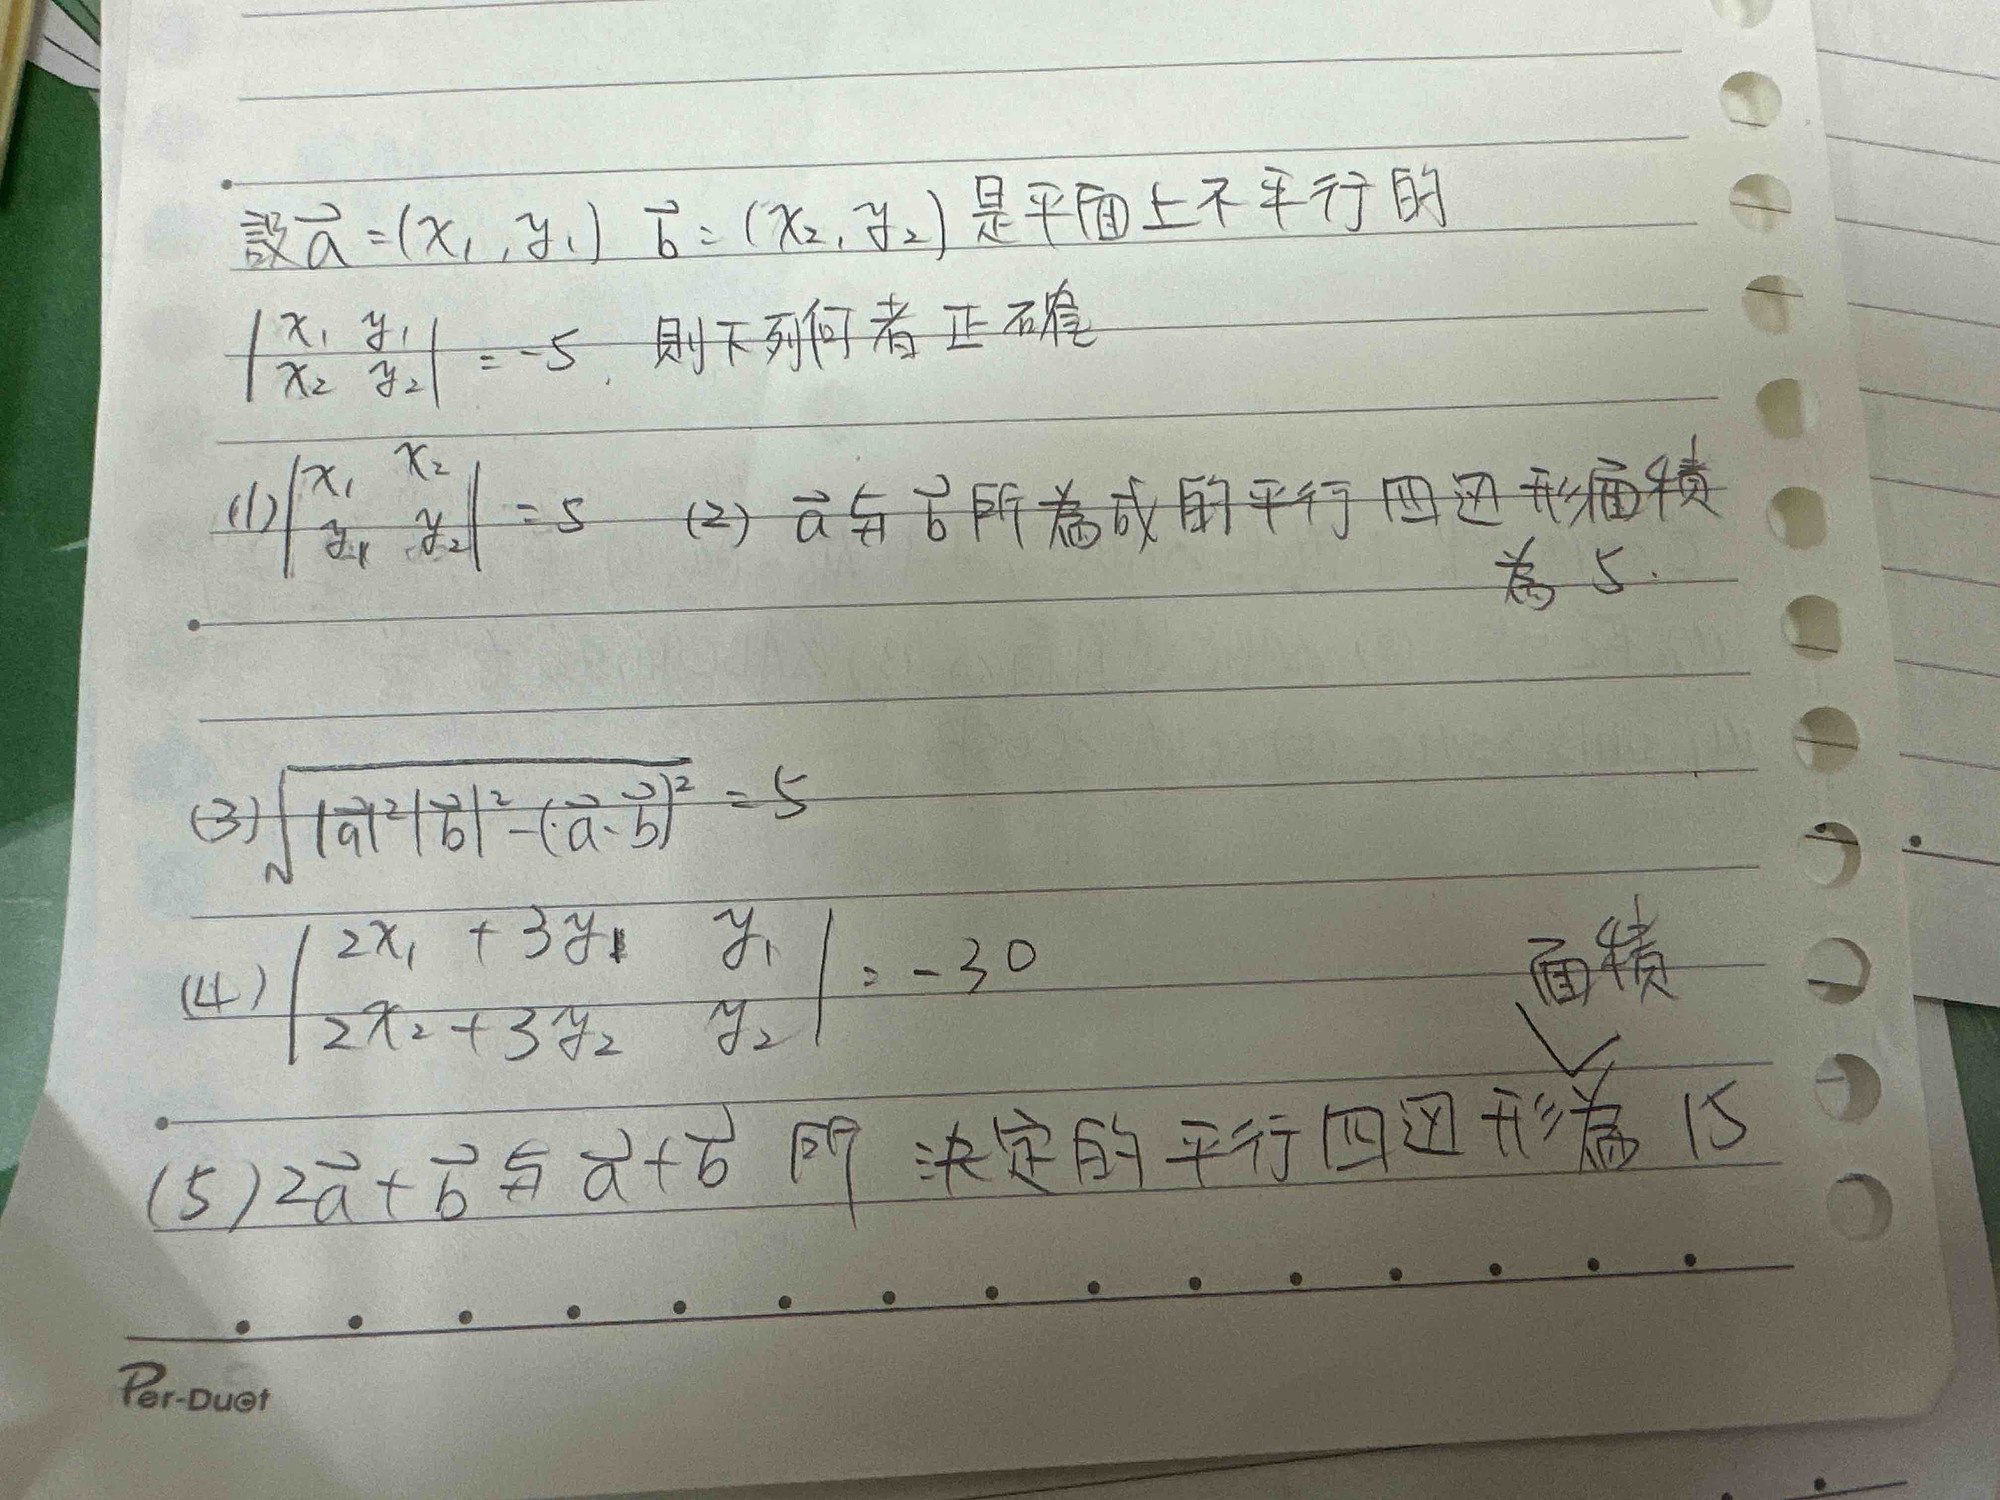 設a⃗=(x₁,y₁) b⃗=(x₂,y₂)是平面上不平行的
|x₁ y₁|
|x₂ y₂| =-5, 則下列何者正確
(1)|x₁ x₂|
|y₁ y₂| =5 (2) a⃗與b⃗所為成的平行四边形面積
為 5.
(3)√|a⃗|²|b⃗|²-(a⃗·b⃗)² =5
(4)|2x₁+3y₁ y₁|
|2x₂+3y₂ y₂| =-30
面積
(5)2a⃗+b⃗與a⃗+b⃗ 所 決定的平行四边形為 15
Per-Duet